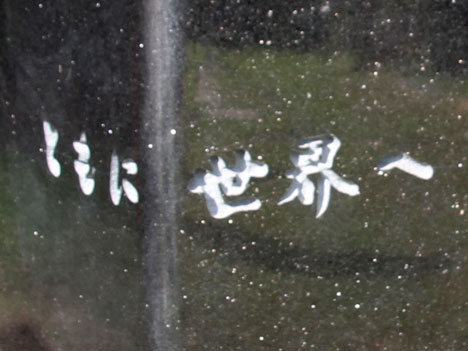 ともに世界へ